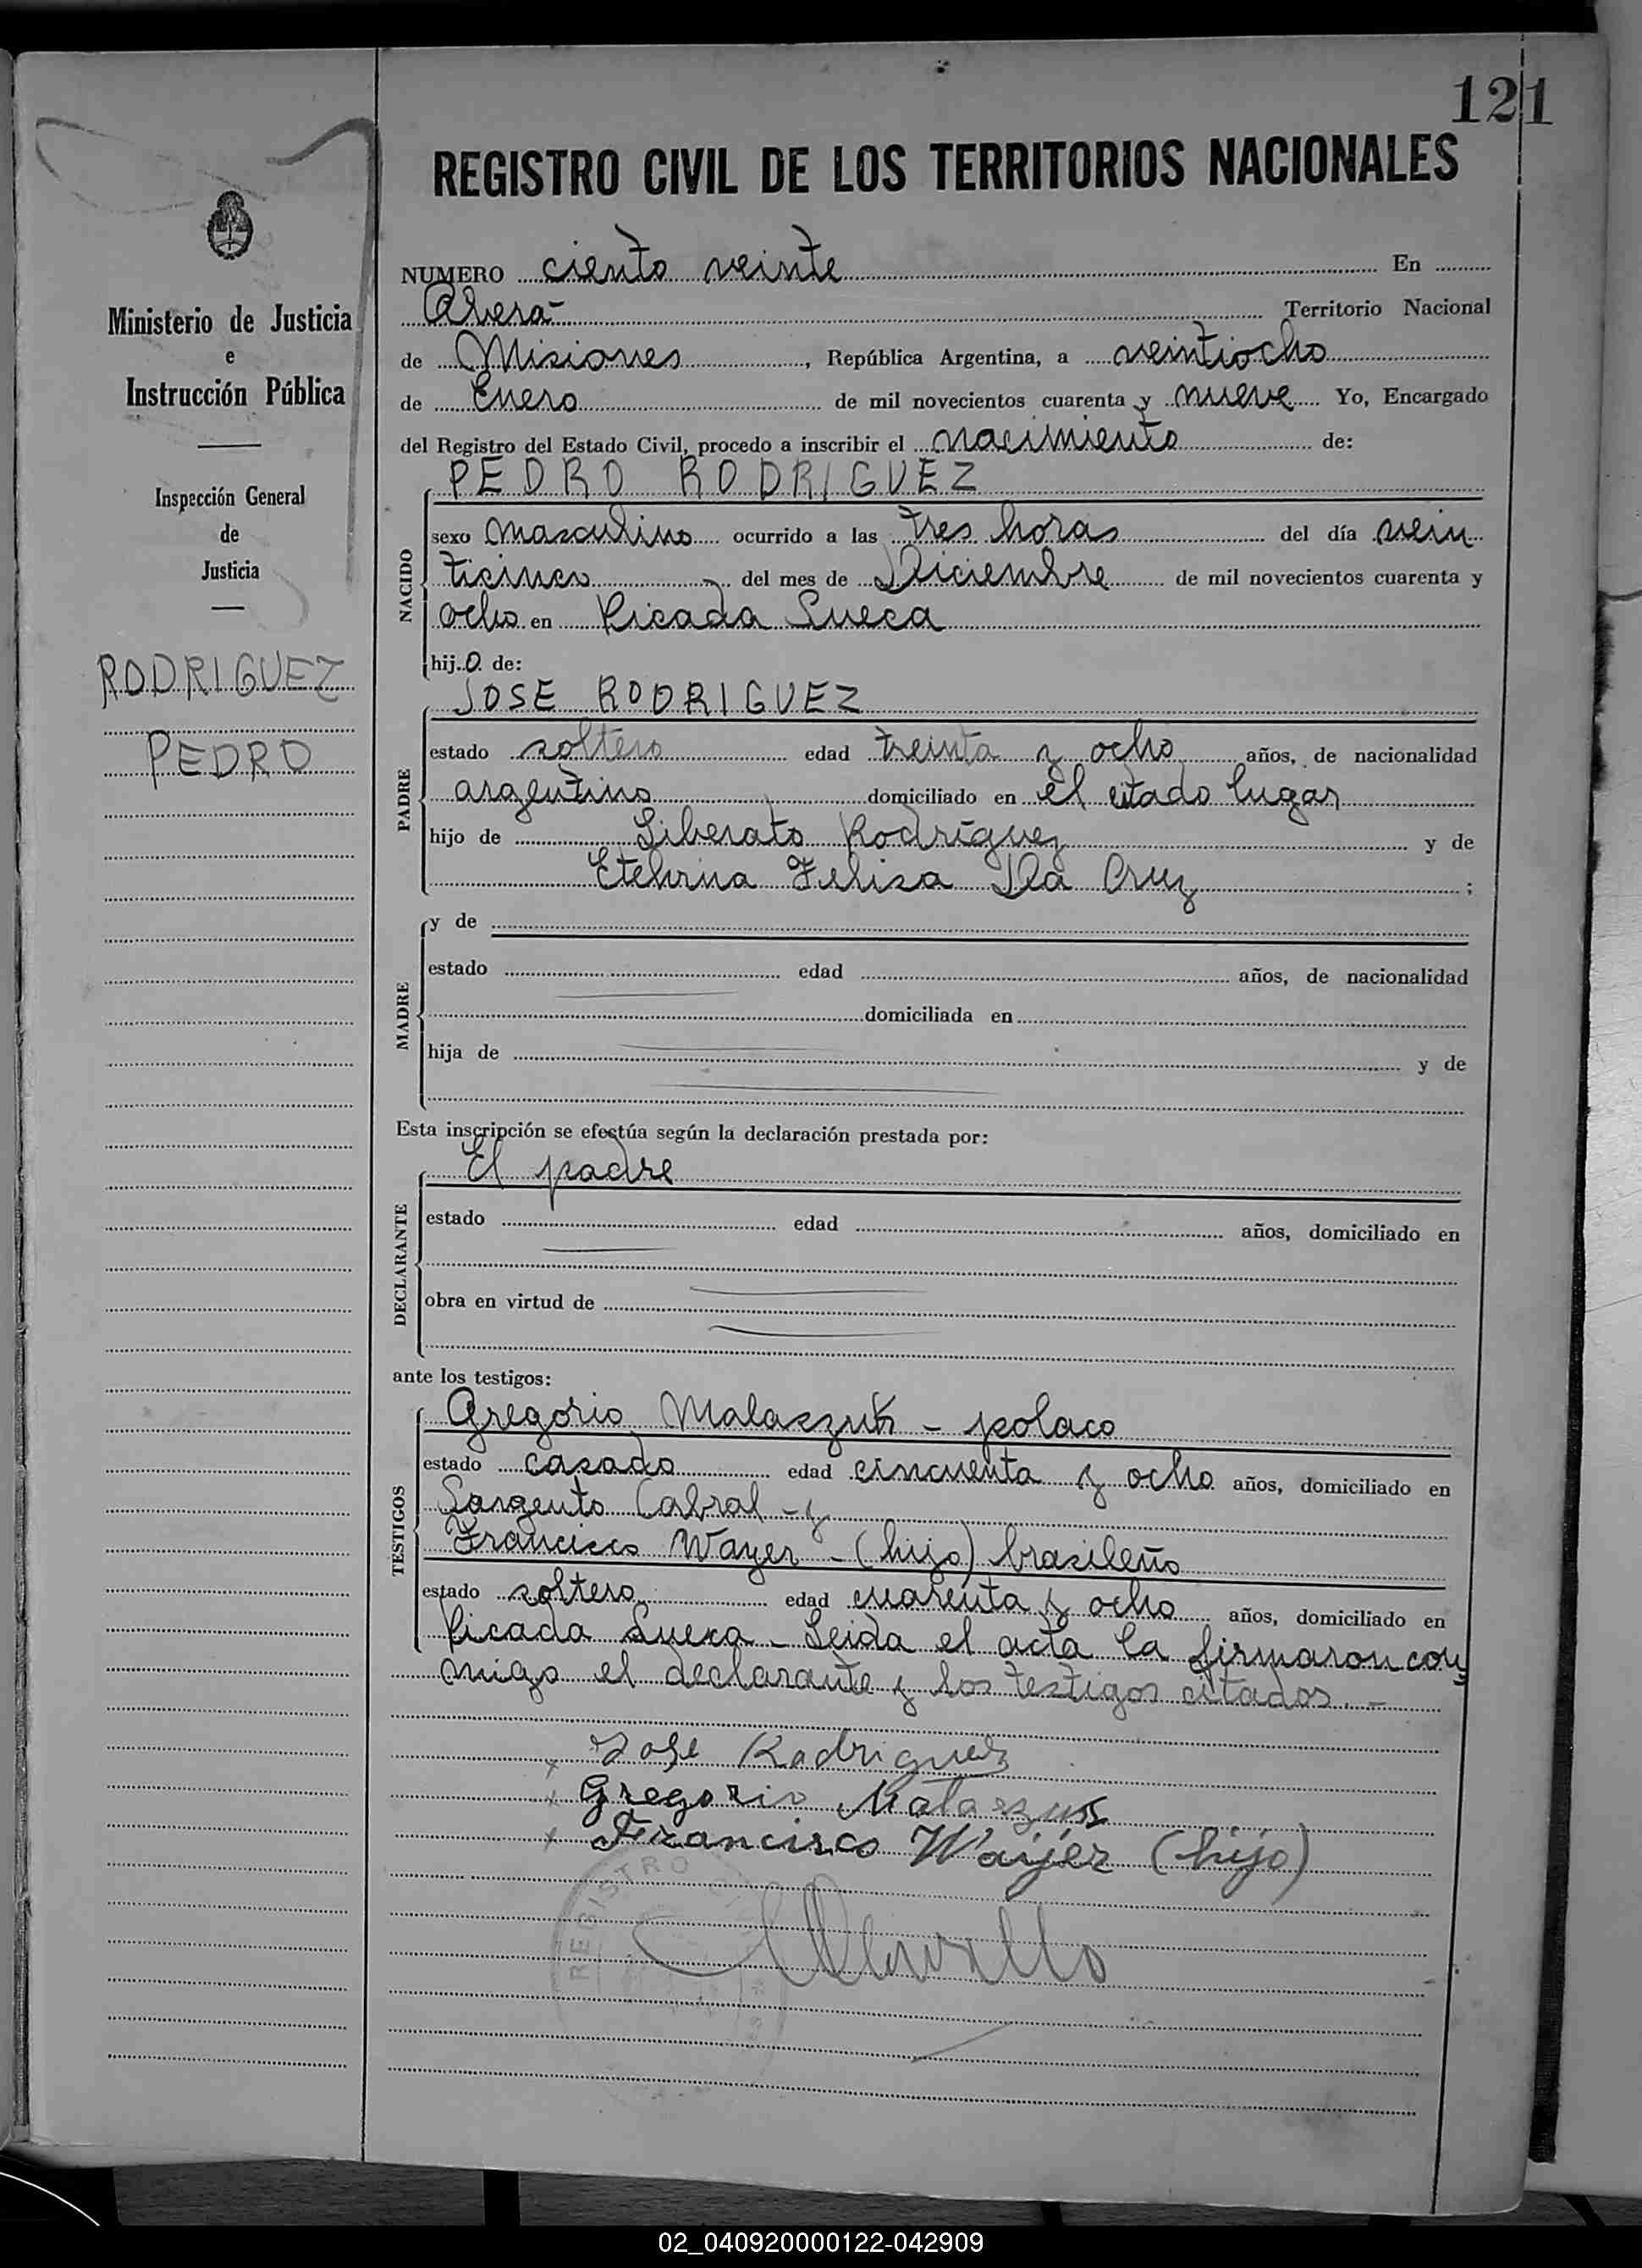 121
REGISTRO CIVIL DE LOS TERRITORIOS NACIONALES
Ministerio de Justicia
e
Instrucción Pública
Inspección General
de
Justicia
RODRIGUEZ
PEDRO
NUMERO ciento veinte En
Oberá- Territorio Nacional
de Misiones, República Argentina, a veintiocho
de Enero de mil novecientos cuarenta y nueve Yo, Encargado
del Registro del Estado Civil, procedo a inscribir el nacimiento de:
NACIDO
PEDRO RODRIGUEZ
sexo masculino ocurrido a las tres horas del día vein
ticinco del mes de Diciembre de mil novecientos cuarenta y
ocho en Picada Sueca
hijo de:
PADRE
JOSE RODRIGUEZ
estado soltero edad treinta y ocho años, de nacionalidad
argentino domiciliado en el citado lugar
hijo de Liberato Rodríguez y de
Felisa Cruz ;
MADRE
y de
estado edad años, de nacionalidad
domiciliada en
hija de y de
Esta inscripción se efectúa según la declaración prestada por:
DECLARANTE
El padre
estado edad años, domiciliado en
obra en virtud de
ante los testigos:
TESTIGOS
Gregorio Malaszuk - polaco
estado casado edad cincuenta y ocho años, domiciliado en
Sargento Cabral - y
Francisco Wayer - (hijo) brasileño
estado soltero edad cuarenta y ocho años, domiciliado en
Picada Sueca - Leida el acta la firmaron con
migo el declarante y los testigos citados. -
x José Rodriguez
x Gregorio Malaszuk
x Francisco Wayer (hijo)
REGISTRO
02_040920000122-042909